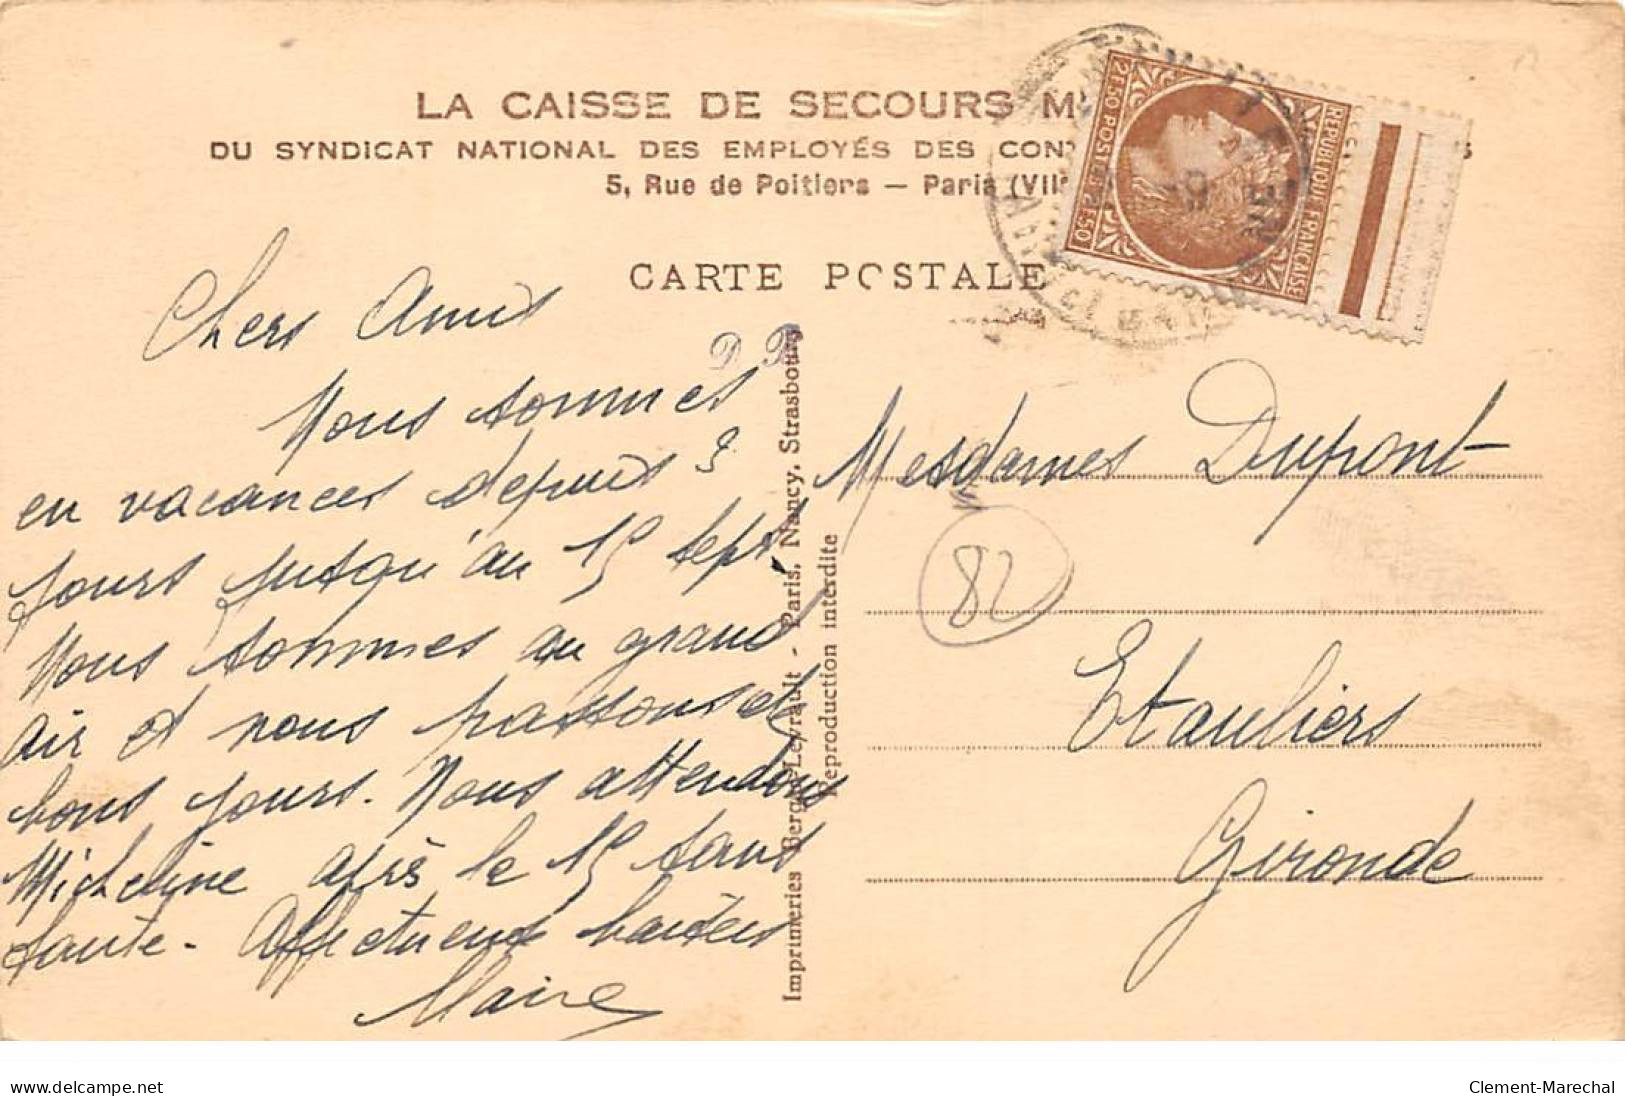 LA CAISSE DE SECOURS M
DU SYNDICAT NATIONAL DES EMPLOYÉS DES CON
5, Rue de Poitiers — Paris (VII
CARTE POSTALE
2F50 POSTES 2F50
REPUBLIQUE FRANÇAISE
Chers Amis
Nous sommes
en vacances depuis 3
jours jusqu'au 15 sept.
Nous sommes au grand
air et nous passons de
bons jours. Nous attendons
Micheline après le 15 sans
faute. Affectueux baisers
Imprimeries Berger-Levrault - Paris, Nancy, Strasbourg
Reproduction interdite
Mesdames Dupont
82
Etauliers
Gironde
www.delcampe.net
Clement-Marechal